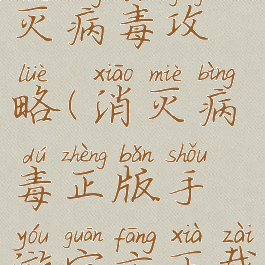 灭病毒攻
lüè xiāo miè bìng
略(消灭病
dú zhèng bǎn shǒu
毒正版手
yóu guān fāng xià zài
游官方下载